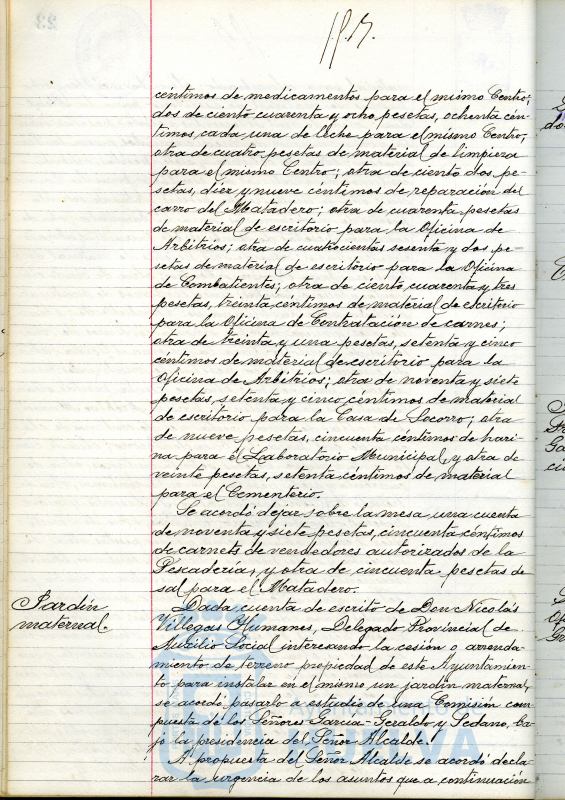 céntimos de medicamentos para el mismo Centro;
dos de ciento cuarenta y ocho pesetas, ochenta cén-
timos, cada una de leche para el mismo Centro;
otra de cuatro pesetas de material de limpieza
para el mismo Centro; otra de ciento dos pe-
setas, diez y nueve céntimos de reparación del
carro del Matadero; otra de cuarenta pesetas
de material de escritorio para la Oficina de
Arbitrios; otra de cuatrocientas sesenta y dos pe-
setas de material de escritorio para la Oficina
de Combatientes; otra de ciento cuarenta y tres
pesetas, treinta céntimos de material de escritorio
para la Oficina de Contratación de carnes;
otra de treinta y una pesetas, setenta y cinco
céntimos de material de escritorio para la
Oficina de Arbitrios; otra de noventa y siete
pesetas, setenta y cinco céntimos de material
de escritorio para la Casa de Socorro; otra
de nueve pesetas, cincuenta céntimos de hari-
na para el Laboratorio Municipal, y otra de
veinte pesetas, setenta céntimos de material
para el Cementerio.
Se acordó dejar sobre la mesa una cuenta
de noventa y siete pesetas, cincuenta céntimos
de carnets de vendedores autorizados de la
Pescadería, y otra de cincuenta pesetas de
sal para el Matadero.
Jardín
maternal.
Dada cuenta de escrito de Don Nicolás
Villegas Humanes, Delegado Provincial de
Auxilio Social interesando la cesión o arrenda-
miento de terreno propiedad de este Ayuntamien-
to para instalar en el mismo un jardín maternal,
se acordó pasarlo a estudio de una Comisión com-
puesta de los Señores Garcia-Geraldo y Sedano, ba-
jo la presidencia del Señor Alcalde.
A propuesta del Señor Alcalde se acordó decla-
rar la urgencia de los asuntos que a continuación